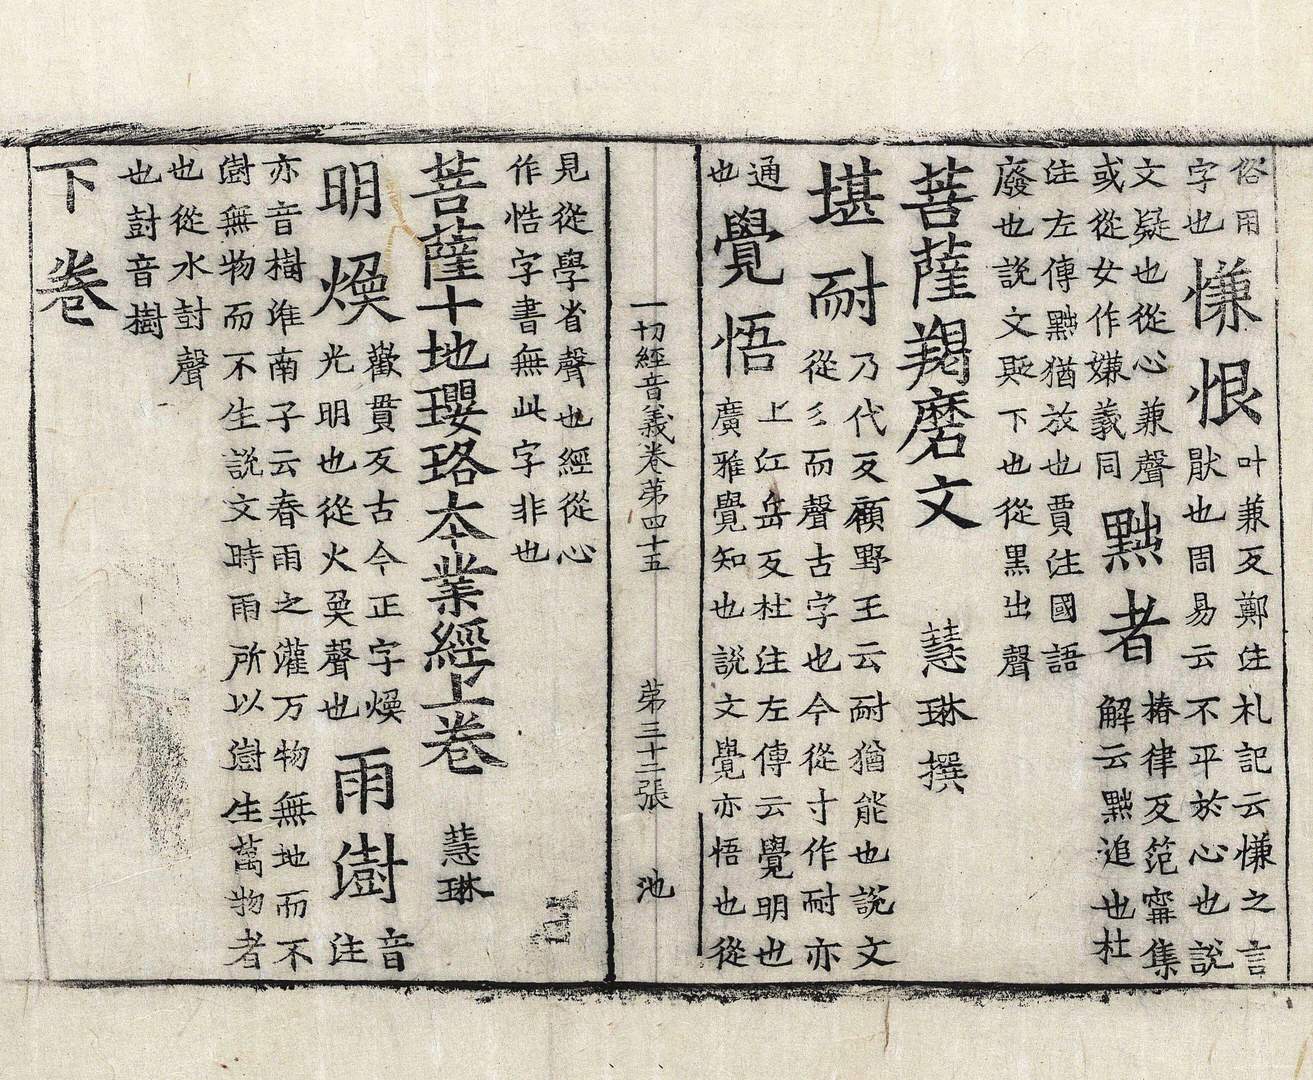 俗用
字也
慊恨
叶兼反鄭注札記云慊之言
猒也周易云不平於心也說
文疑也從心兼聲
或從女作嫌義同
黜者
椿律反范甯集
解云黜追也杜
注左傳黜猶放也賈注國語
廢也說文貶下也從黒出聲
菩薩羯磨文 慧琳撰
堪耐
乃代反顧野王云耐猶能也說文
從彡而聲古字也今從寸作耐亦
通
也
覺悟
上江岳反杜注左傳云覺明也
廣雅覺知也說文覺亦悟也從
一切經音義卷第四十五 第三十二張 池
見從學省聲也經從心
作悎字書無此字非也
菩薩十地瓔珞本業經上卷 慧琳
明煥
歡貫反古今正字煥
光明也從火奐聲也
雨澍
音
注
亦音樹淮南子云春雨之灌万物無地而不
澍無物而不生說文時雨所以澍生萬物者
也從水尌聲
也尌音樹
下卷